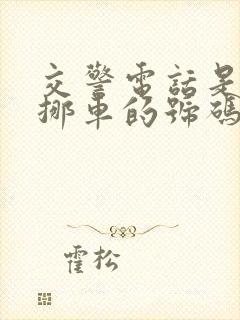 交警電話是
挪車的號碼
霍松